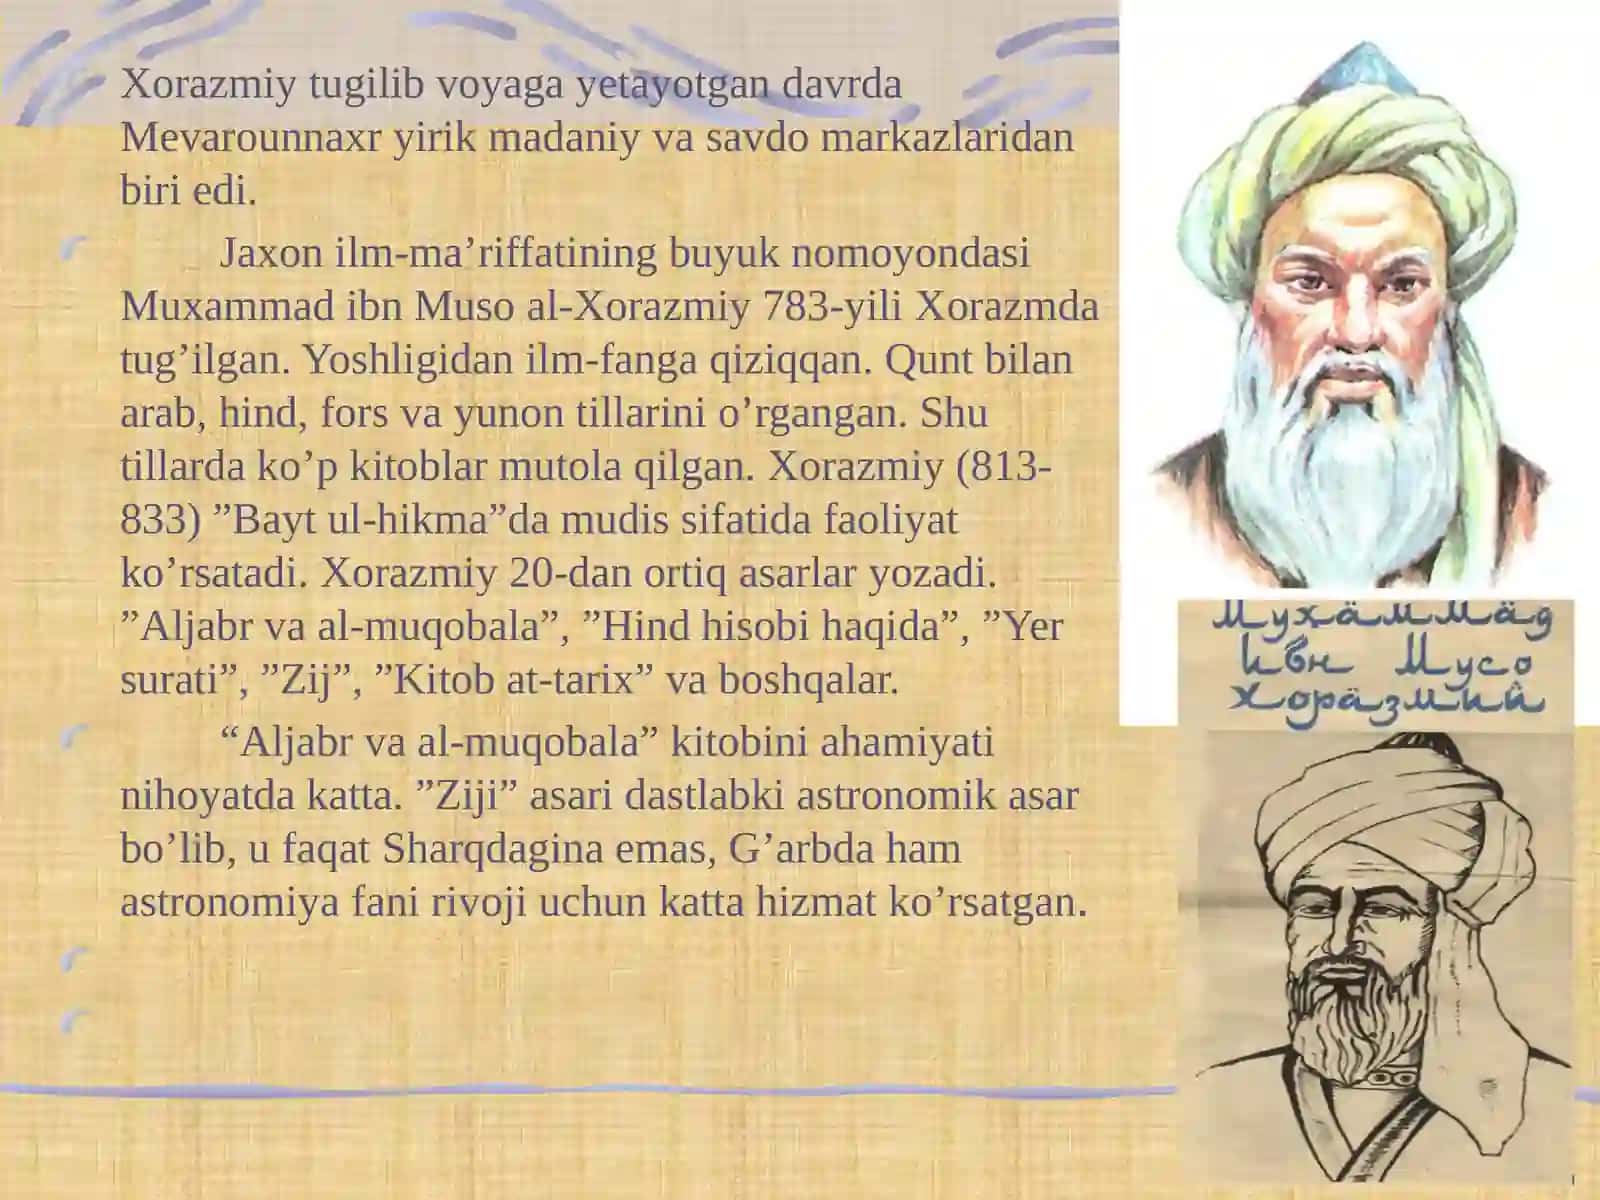 Xorazmiy tugilib voyaga yetayotgan davrda
Mevarounnaxr yirik madaniy va savdo markazlaridan
biri edi.
Jaxon ilm-ma’riffatining buyuk nomoyondasi
Muxammad ibn Muso al-Xorazmiy 783-yili Xorazmda
tug’ilgan. Yoshligidan ilm-fanga qiziqqan. Qunt bilan
arab, hind, fors va yunon tillarini o’rgangan. Shu
tillarda ko’p kitoblar mutola qilgan. Xorazmiy (813-
833) ”Bayt ul-hikma”da mudis sifatida faoliyat
ko’rsatadi. Xorazmiy 20-dan ortiq asarlar yozadi.
”Aljabr va al-muqobala”, ”Hind hisobi haqida”, ”Yer
surati”, ”Zij”, ”Kitob at-tarix” va boshqalar.
“Aljabr va al-muqobala” kitobini ahamiyati
nihoyatda katta. ”Ziji” asari dastlabki astronomik asar
bo’lib, u faqat Sharqdagina emas, G’arbda ham
astronomiya fani rivoji uchun katta hizmat ko’rsatgan.
Мухаммад
Ибн Мусо
Хоразмий